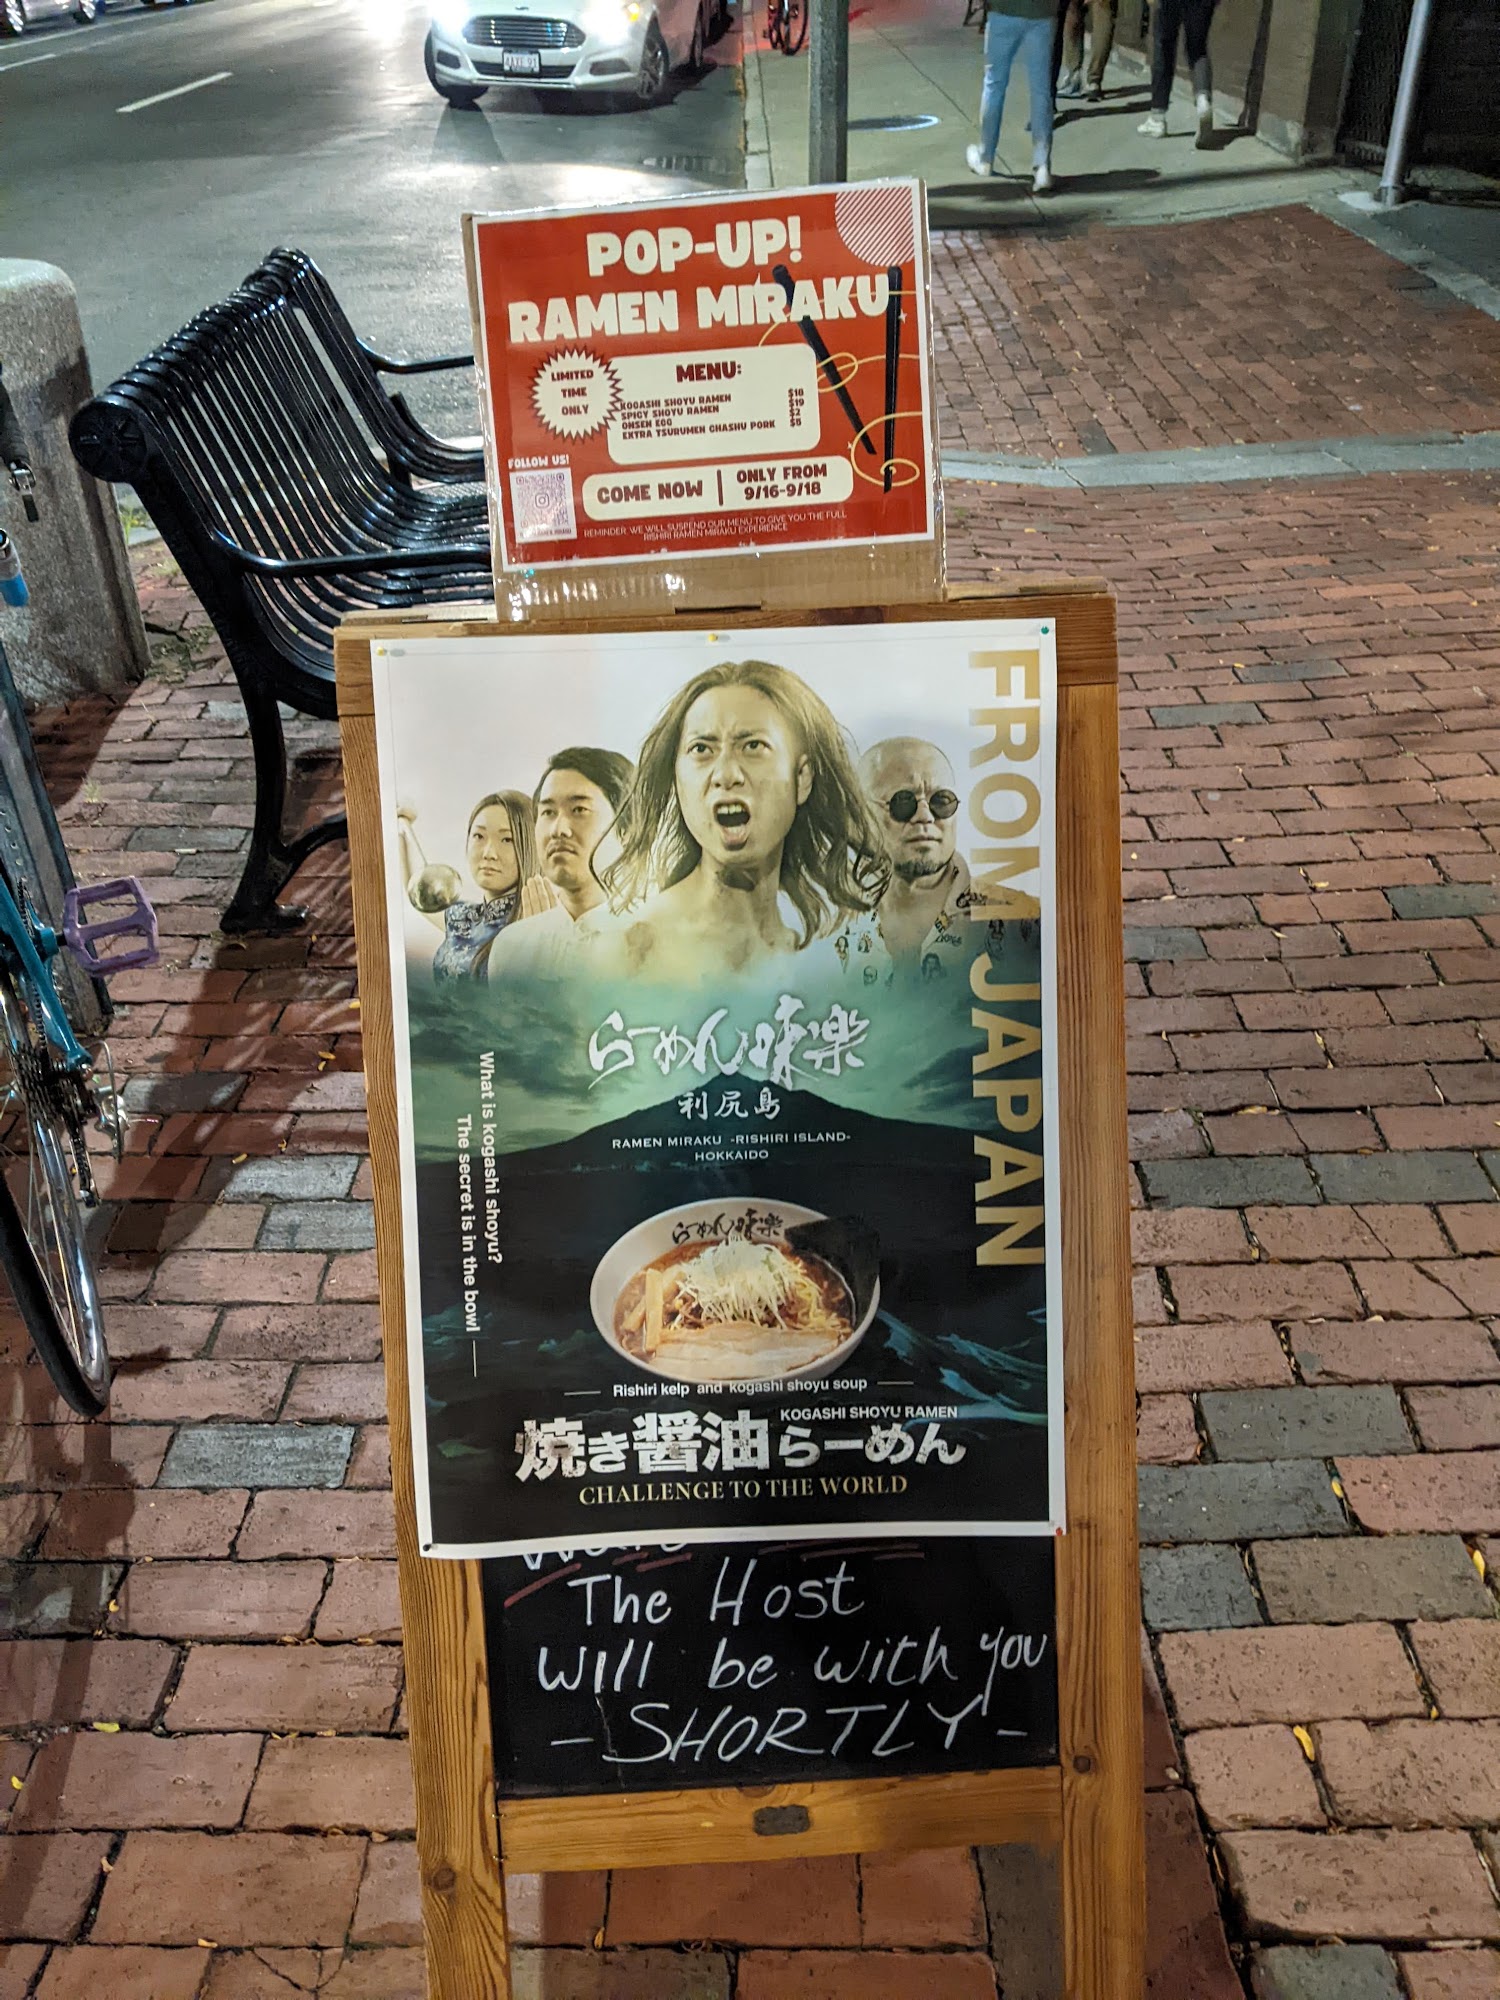 POP-UP!
RAMEN MIRAKU
LIMITED
TIME
ONLY
MENU:
KOGASHI SHOYU RAMEN $18
SPICY SHOYU RAMEN $19
ONSEN EGG $2
EXTRA TSURUMEN CHASHU PORK $5
FOLLOW US!
COME NOW
ONLY FROM
9/16-9/18
REMINDER: WE WILL SUSPEND OUR MENU TO GIVE YOU THE FULL
RISHIRI RAMEN MIRAKU EXPERIENCE
FROM JAPAN
らーめん味楽
利尻島
RAMEN MIRAKU -RISHIRI ISLAND-
HOKKAIDO
What is kogashi shoyu?
The secret is in the bowl
らーめん味楽
Rishiri kelp and kogashi shoyu soup
KOGASHI SHOYU RAMEN
焼き醤油らーめん
CHALLENGE TO THE WORLD
The Host
will be with you
- SHORTLY -